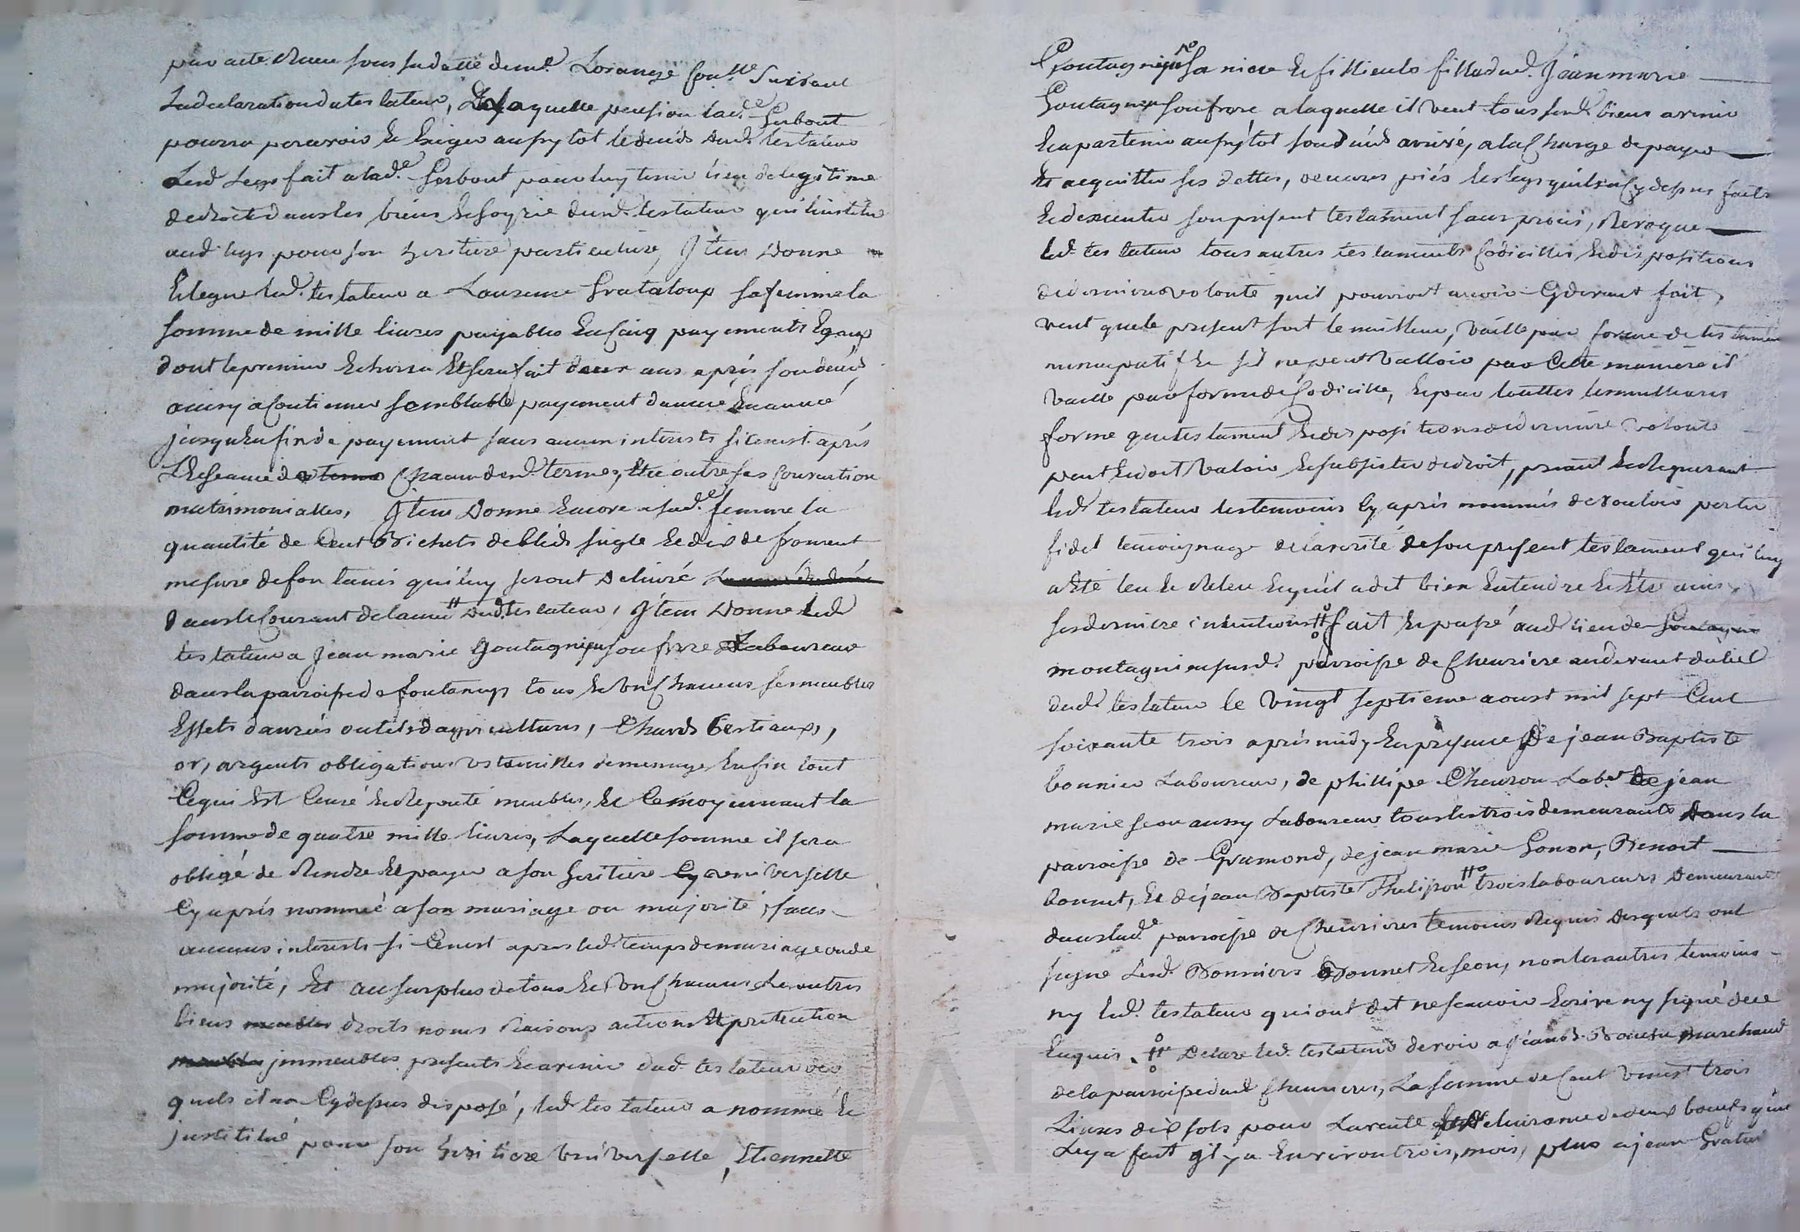 par acte Reçu sous sa datte de me. Lorange
la declaration du testateur, de laquelle pension lad.e Gerbout
pourra percevoir et Exiger aussytot le deceds dud. testateur
Led. Legs fait a lad.e Gerbout pour luy tenir lieu de legitime
de droits dans les biens et hoyrie dud. testateur qui l'institue
aud. legs pour son heritiere particuliere, Item Donne
Et legue led. testateur a Laurence Grataloup sa femme la
somme de mille livres payables En Cinq payements Egaux
dont le premier Echerra Et sera fait deux ans après son deceds
ainsy a Continuer semblable payement d'année En année
jusqu'En fin de payement sans aucun interests si ce n'est après
l'Echeance de Chacun desd. termes, Et ce outre ses Convention
matrimonialles, Item Donne Encore a sad.e femme la
quantité de Cent Bichets de bled seigle Et dix de froment
mesure de fontanès qui luy seront Delivré
dans le Courant de l'année dud. testateur, Item Donne Led.
testateur a Jean marie Goutagnieu son frere Laboureur
dans la parroisse de fontanays tous Et Uns Chacuns ses meubles
Effets danrées outils d'agricultures, Chards Bestiaux,
or, argents obligations Ustancilles de menage Enfin tout
Ce qui Est Censé Et Reputé meubles, Et Ce moyennant la
somme de quatre mille livres, Laquelle somme il sera
obligé de Rendre Et payer a son heritiere universelle
Cy après nommée a son mariage ou majorité, sans
aucuns interests si Ce n'est apres led. temps de mariage ou de
majorité, Et au surplus de tous Et Uns Chacuns Les autres
biens droits noms Raisons actions Et pretention
immeubles presents Et avenir dud. testateur des
quels il n'a Cy dessus disposé, led. testateur a nommé Et
institué pour son heritiere Universelle, Etiennette
Goutagnieu sa niece Et fillieule fille dud. Jean marie
Goutagnieu son frere a laquelle il veut tous sesd. biens avenir
Et apartenir aussytot son deceds arrivé, a la Charge de payer
Et acquitter ses dettes, oeuvres piés Et legs qu'il a Cy dessus faits
Et d'executer son present testament sans procès, Revoque
led. testateur tous autres testaments Codicilles Et dispositions
de derniere volonté qu'il pourroit avoir Cy devant fait,
veut que le present sort le meilleur, vaille par forme de testament
nuncupatif Et s'il ne peut valloir par Cette maniere il
vaille par forme de Codicille, Et par touttes les meilleures
forme que testament Et dispositions de derniere volonté
peut Et doit valoir Et subsister de droit, priant Et Requerant
led. testateur les temoins Cy après nommés de vouloir porter
fidel temoignage de la verité de son present testament qui luy
a Eté leu Et Releu Et qu'il a dit bien Entendre Et Etre ainsy
ses dernieres intentions fait Et passé aud. lieu de
montagnieu susd. parroisse de Chevriere au devant du
dud. testateur le vingt septieme aoust mil sept Cent
soixante trois après midy En presence De jean Baptiste
bonnier Laboureur, de phillipe Lab.r de jean
marie seon aussy Laboureur tous les trois demeurants Dans la
parroisse de Gramond, de jean marie Gonon, Benoit
bonnet, Et de jean Baptiste trois laboureurs Demeurant
dans lad.e parroisse de Chevrieres temoins Requis Desquels ont
signé Lesd. Bonniers Bonnet Et seon, non les autres temoins
ny led. testateur qui ont dit ne scavoir Ecrire ny signé de ce
Enquis. Declare led. testateur devoir a marchand
de la parroisse dud. Chevrieres, La somme de Cent vingt trois
Livres dix sols pour La vente Et delivrance de deux boeufs qu'il
Luy a fait il y a Environ trois mois, plus a jean